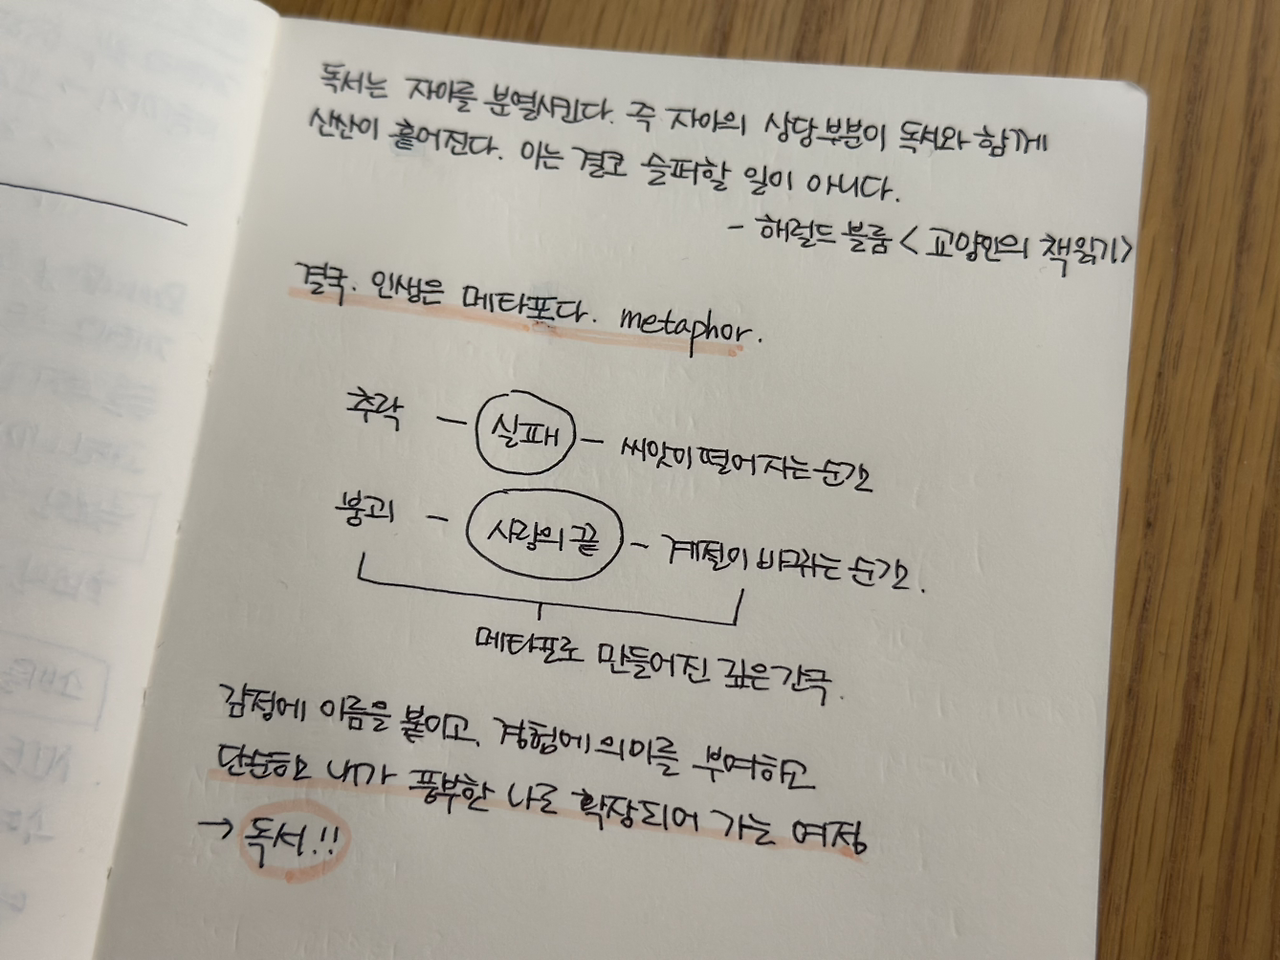 독서는 자아를 분열시킨다. 즉 자아의 상당부분이 독서와 함께
산산이 흩어진다. 이는 결코 슬퍼할 일이 아니다.
- 해럴드 블룸 <교양인의 책읽기>
결국. 인생은 메타포다. metaphor.
추락 - 실패 - 씨앗이 떨어지는 순간
붕괴 - 사랑의 끝 - 계절이 바뀌는 순간.
메타포로 만들어진 깊은 간극.
감정에 이름을 붙이고, 경험에 의미를 부여하고
단순했던 내가 풍부한 나로 확장되어 가는 여정
→ 독서!!